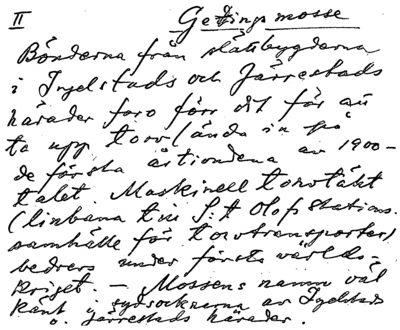 II Getingsmosse
Bönderna från slätsbygderna
i Ingelstads och Järrestads
härader foro förr dit för att
ta upp torv (ända in på
de första årtiondena av 1900-
talet. Maskinell torvtäkt
(linbana till S:t Olofs stations-
samhälle för torvtransporter)
bedrevs under första världs-
kriget. – Mossens namn väl
känt i sydsocknarna av Ingelstads
o. Järrestads härader.